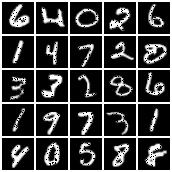 6 4 0 2 6
1 4 7 2 0
3 7 2 8 6
1 9 7 3 1
4 0 5 8